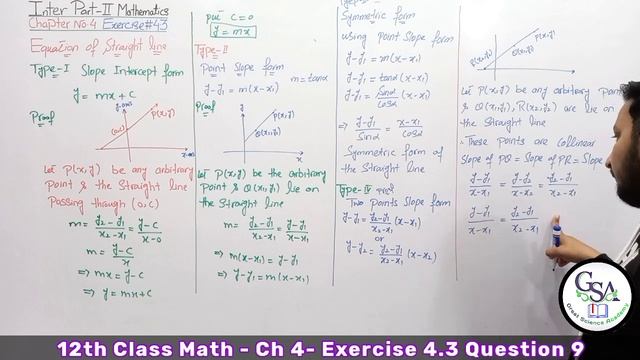 Inter Part-II Mathematics
Chapter No.4 Exercise#4.3
Equation of Straight line
Type-I Slope Intercept form
y = mx + c
Proof
y-axis
P(x,y)
(0,c)
x-axis
Let P(x,y) be any arbitrary
Point & the Straight line
Passing through (0,c)
m = y₂-y₁/x₂-x₁ = y-c/x-0
m = y-c/x
⇒ mx = y-c
⇒ y = mx+c
put c=0
y = mx
Type-II
Point Slope form
m = tanα
y-y₁ = m(x-x₁)
Proof
P(x,y)
Q(x₁,y₁)
Let P(x,y) be the arbitrary
Point & Q(x₁,y₁) lie on
the Straight line
m = y₂-y₁/x₂-x₁ = y-y₁/x-x₁
⇒ m(x-x₁) = y-y₁
⇒ y-y₁ = m(x-x₁)
Symmetric form
using point slope form
y-y₁ = m(x-x₁)
y-y₁ = tanα(x-x₁)
y-y₁ = sinα/cosα (x-x₁)
⇒ y-y₁/sinα = x-x₁/cosα
Symmetric form of
the Straight line
Type-IV
Two points Slope form
y-y₁ = y₂-y₁/x₂-x₁ (x-x₁)
or
y-y₂ = y₂-y₁/x₂-x₁ (x-x₂)
P(x,y)
Q(x₁,y₁)
R(x₂,y₂)
Let P(x,y) be any arbitrary Point
& Q(x₁,y₁), R(x₂,y₂) are lie on
the Straight line
∴ These points are collinear
Slope of PQ = Slope of PR = Slope
y-y₁/x-x₁ = y-y₂/x-x₂ = y₂-y₁/x₂-x₁
y-y₁/x-x₁ = y₂-y₁/x₂-x₁
GSA
Great Science Academy
12th Class Math - Ch 4- Exercise 4.3 Question 9